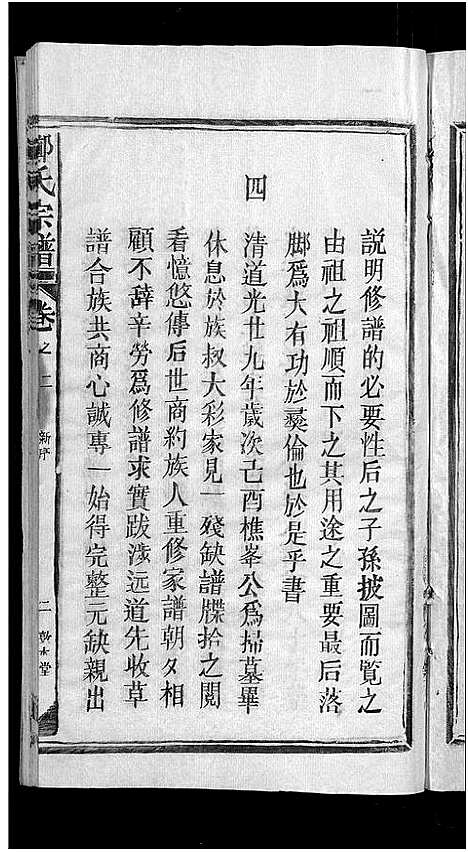 說明修譜的必要性后之子孫披圖而覽之
由祖之祖順而下之其用途之重要最后落
脚爲大有功於彞倫也於是乎書
四
清道光廿九年歲次己酉樵峯公爲掃墓畢
休息於族叔大彩家見一殘缺譜牒拾之閱
看憶悠傳后世商約族人重修家譜朝夕相
顧不辞辛勞爲修譜求實跋涉远道先收草
譜合族共商心誠專一始得完整元缺親出
鄭氏宗譜 卷之二 新序 二 敦本堂